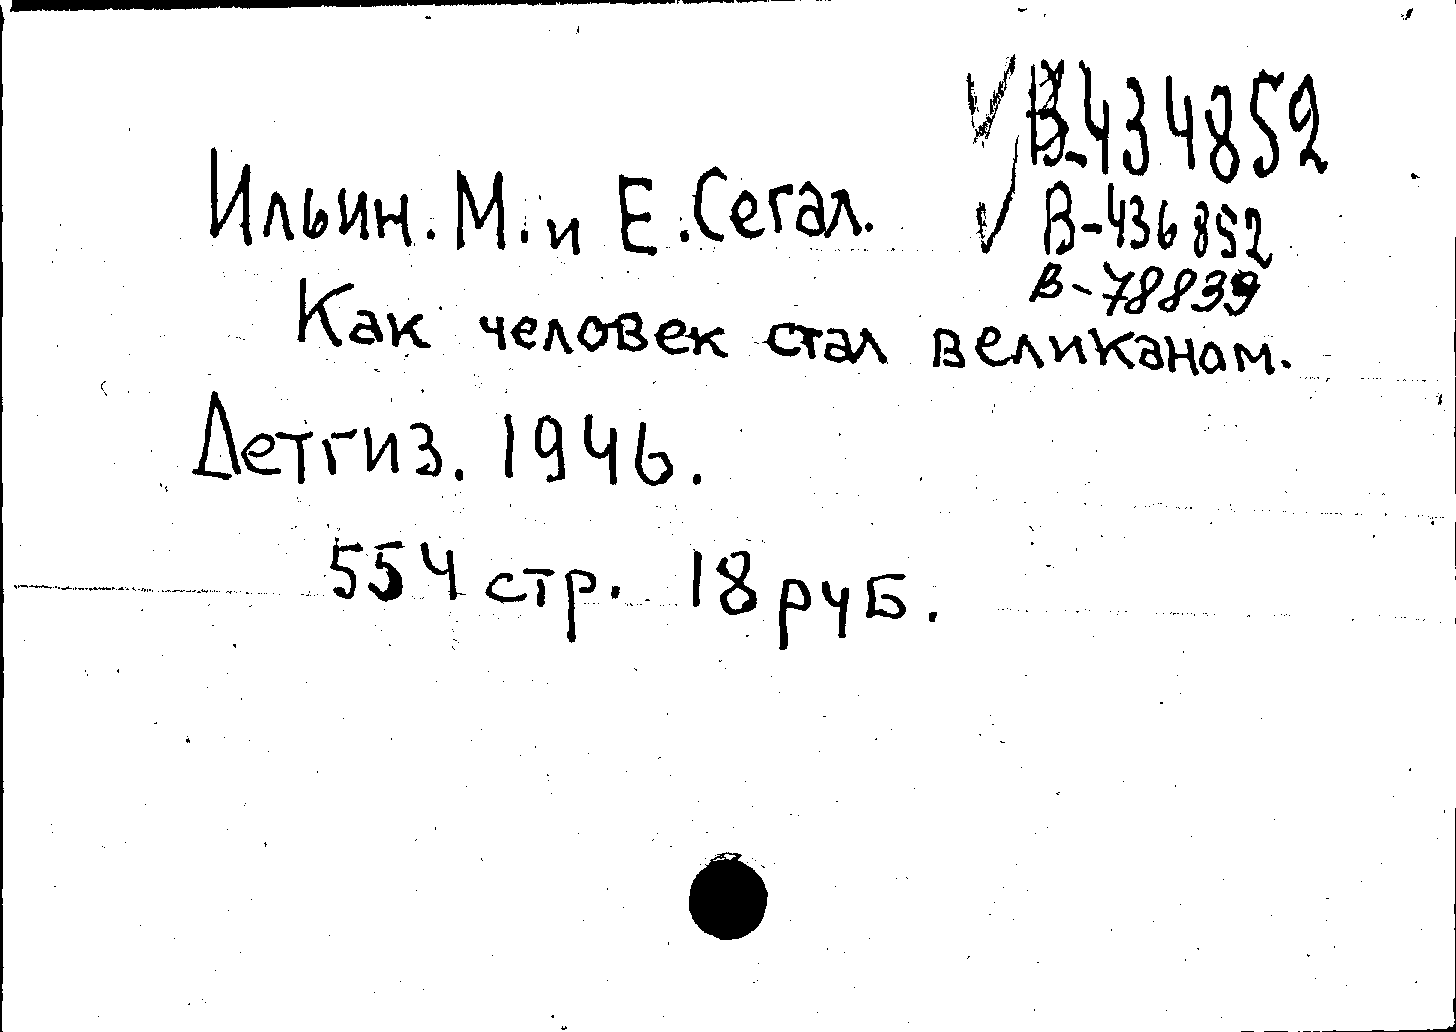 В-434852
Ильин. М. и Е. Сегал.
В-436852
В-78839
Как человек стал великаном.
Детгиз. 1946.
554 стр. 18 руб.